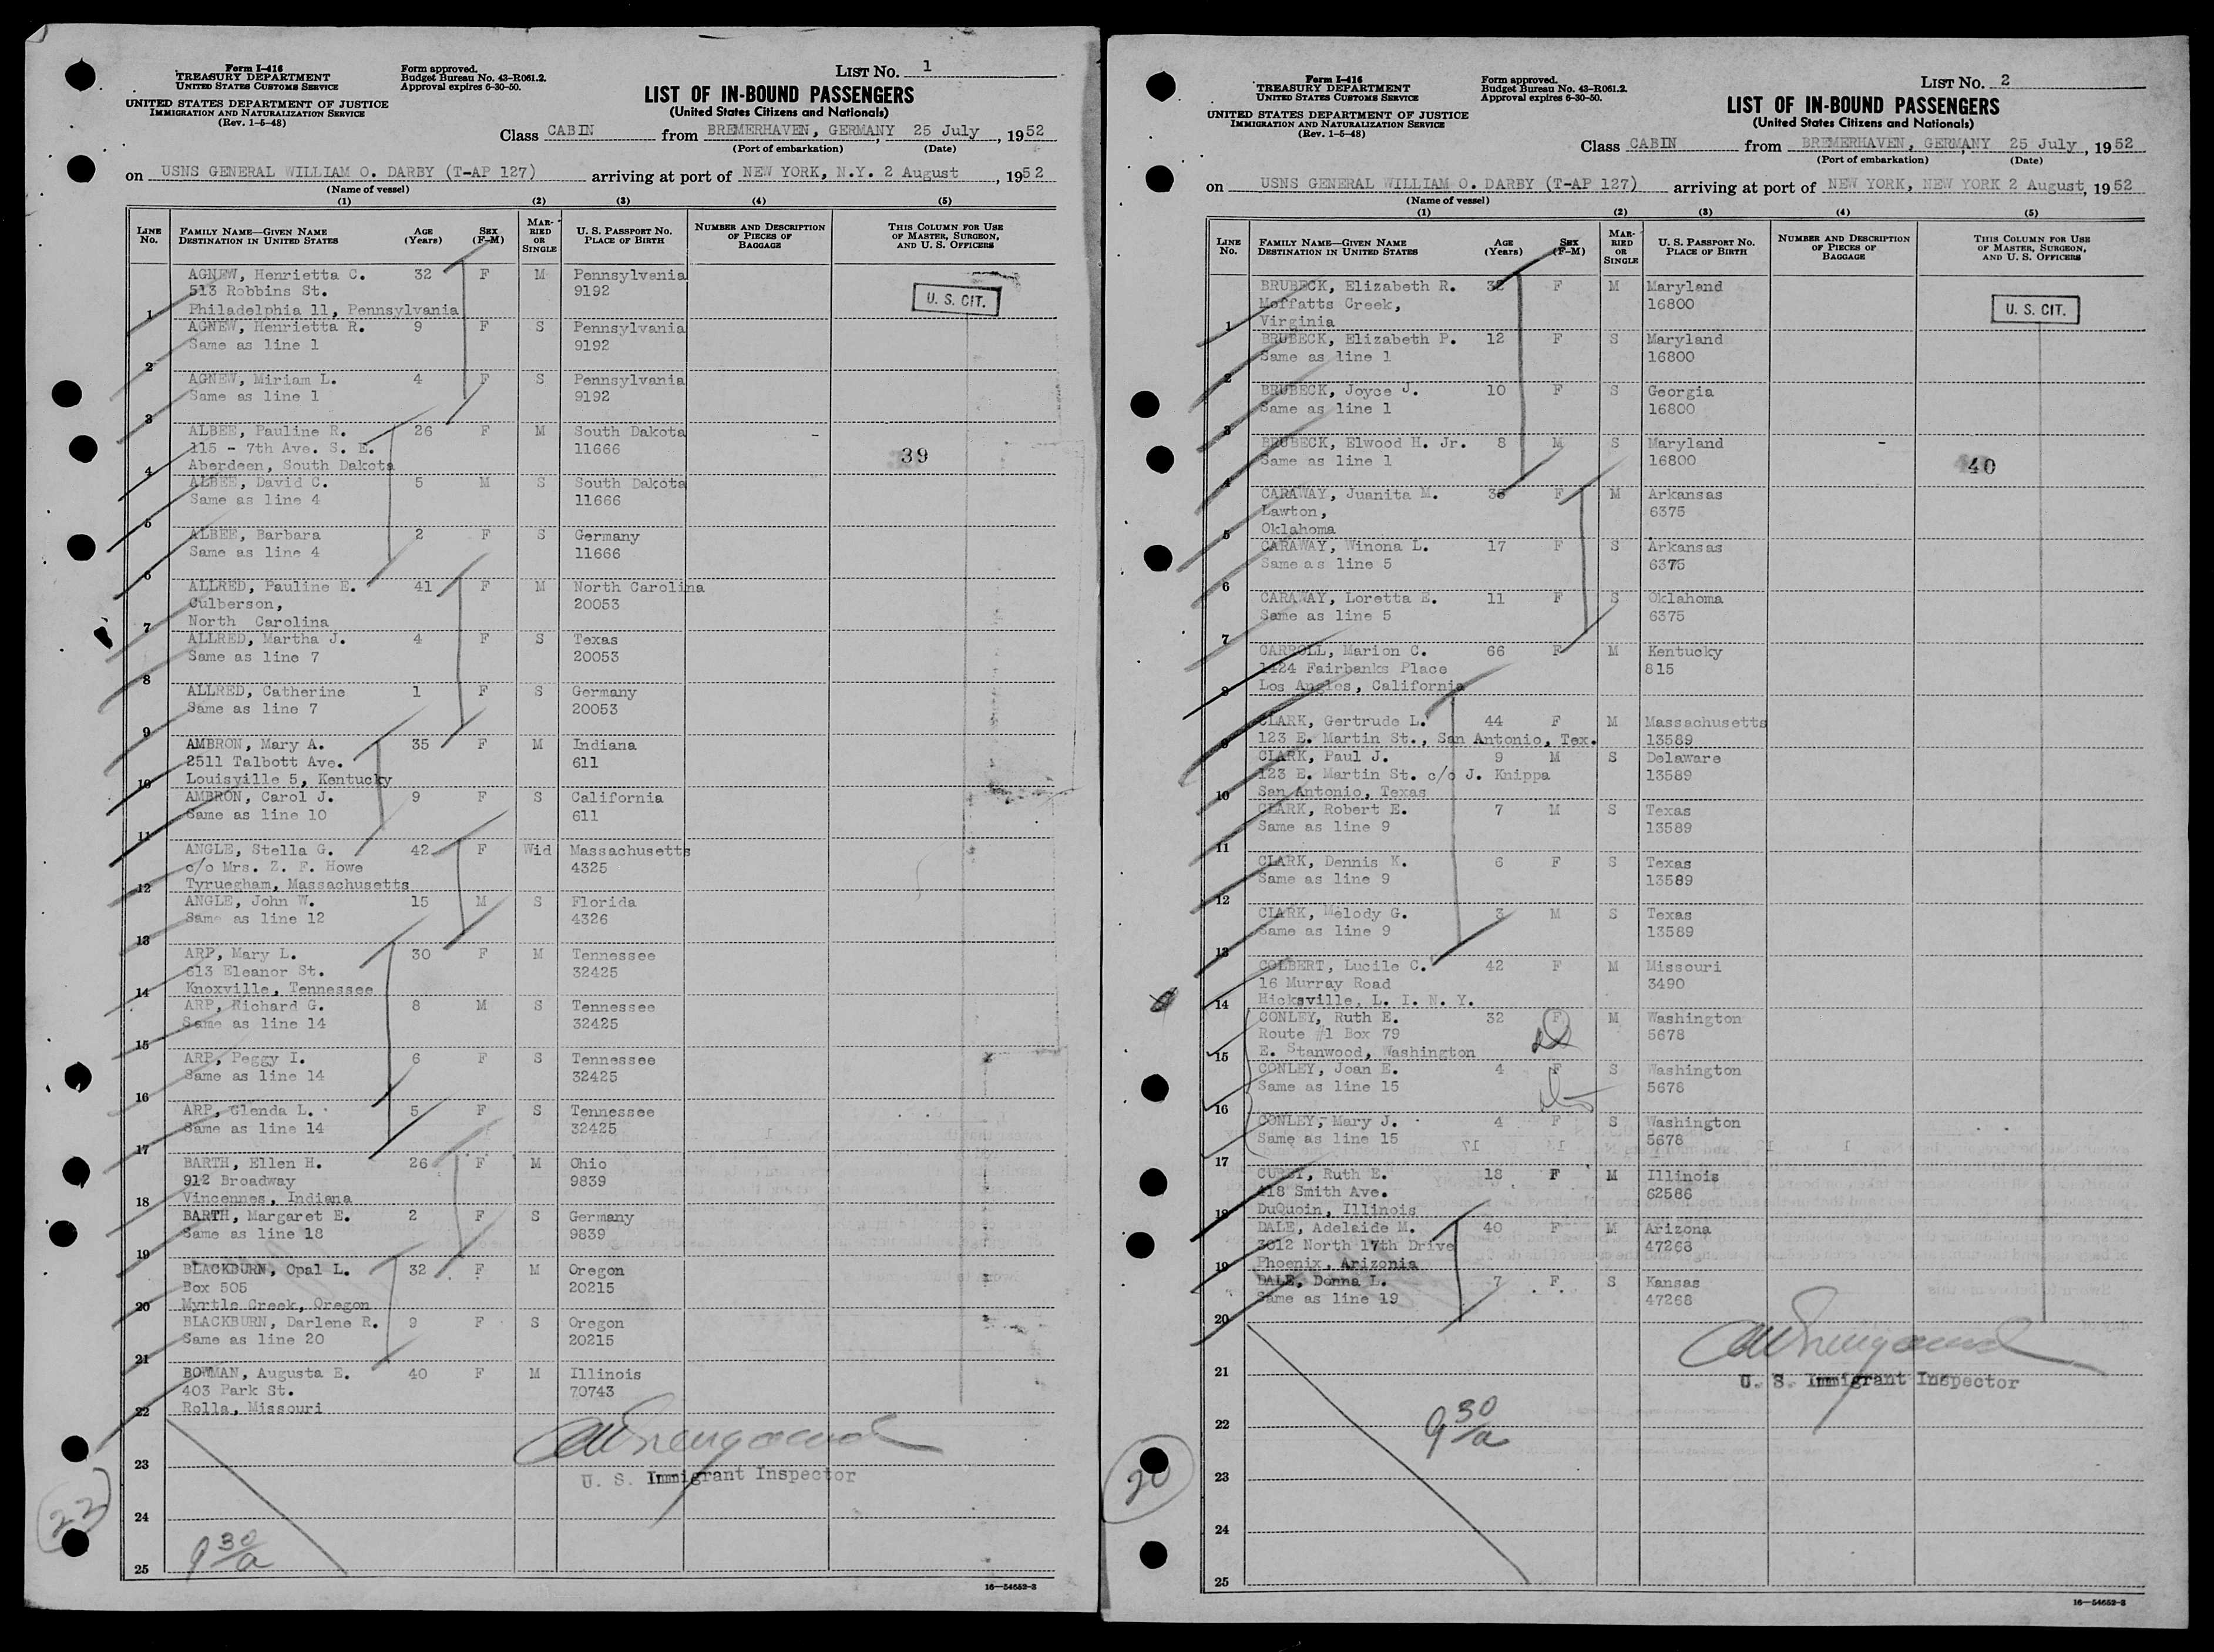 Form I-416
TREASURY DEPARTMENT
UNITED STATES CUSTOMS SERVICE
UNITED STATES DEPARTMENT OF JUSTICE
IMMIGRATION AND NATURALIZATION SERVICE
(Rev. 1-5-48)
Form approved.
Budget Bureau No. 43-R061.2.
Approval expires 6-30-50.
LIST NO. 1
LIST OF IN-BOUND PASSENGERS
(United States Citizens and Nationals)
Class CABIN from BREMERHAVEN, GERMANY, 25 July, 1952
(Port of embarkation) (Date)
on USNS GENERAL WILLIAM O. DARBY (T-AP 127) arriving at port of NEW YORK, N.Y. 2 August, 1952
(Name of vessel)
(1) (2) (3) (4) (5)
LINE No. FAMILY NAME—GIVEN NAME DESTINATION IN UNITED STATES AGE (Years) SEX (F-M) MARRIED OR SINGLE U. S. PASSPORT NO. PLACE OF BIRTH NUMBER AND DESCRIPTION OF PIECES OF BAGGAGE THIS COLUMN FOR USE OF MASTER, SURGEON, AND U. S. OFFICERS
AGNEW, Henrietta C. 32 F M Pennsylvania
513 Robbins St. 9192
U. S. CIT.
1 Philadelphia 11, Pennsylvania
AGNEW, Henrietta R. 9 F S Pennsylvania
Same as line 1 9192
2
AGNEW, Miriam L. 4 F S Pennsylvania
Same as line 1 9192
3
ALBEE, Pauline R. 26 F M South Dakota
115 - 7th Ave. S. E. 11666
39
4 Aberdeen, South Dakota
ALBEE, David C. 5 M S South Dakota
Same as line 4 11666
5
ALBEE, Barbara 2 F S Germany
Same as line 4 11666
6
ALLRED, Pauline E. 41 F M North Carolina
Culberson, 20053
7 North Carolina
ALLRED, Martha J. 4 F S Texas
Same as line 7 20053
8
ALLRED, Catherine 1 F S Germany
Same as line 7 20053
9
AMBRON, Mary A. 35 F M Indiana
2511 Talbott Ave. 611
10 Louisville 5, Kentucky
AMBRON, Carol J. 9 F S California
Same as line 10 611
11
ANGLE, Stella G. 42 F Wid Massachusetts
c/o Mrs. Z. F. Howe 4325
12 Tyruegham, Massachusetts
ANGLE, John W. 15 M S Florida
Same as line 12 4326
13
ARP, Mary L. 30 F M Tennessee
613 Eleanor St. 32425
14 Knoxville, Tennessee
ARP, Richard G. 8 M S Tennessee
Same as line 14 32425
15
ARP, Peggy I. 6 F S Tennessee
Same as line 14 32425
16
ARP, Glenda L. 5 F S Tennessee
Same as line 14 32425
17
BARTH, Ellen H. 26 F M Ohio
912 Broadway 9839
18 Vincennes, Indiana
BARTH, Margaret E. 2 F S Germany
Same as line 18 9839
19
BLACKBURN, Opal L. 32 F M Oregon
Box 505 20215
20 Myrtle Creek, Oregon
BLACKBURN, Darlene R. 9 F S Oregon
Same as line 20 20215
21
BOWMAN, Augusta E. 40 F M Illinois
403 Park St. 70743
22 Rolla, Missouri
23
U. S. Immigrant Inspector
22
24
9 30/a
25
16—54652-3
Form I-416
TREASURY DEPARTMENT
UNITED STATES CUSTOMS SERVICE
UNITED STATES DEPARTMENT OF JUSTICE
IMMIGRATION AND NATURALIZATION SERVICE
(Rev. 1-5-48)
Form approved.
Budget Bureau No. 43-R061.2.
Approval expires 6-30-50.
LIST NO. 2
LIST OF IN-BOUND PASSENGERS
(United States Citizens and Nationals)
Class CABIN from BREMERHAVEN, GERMANY 25 July, 1952
(Port of embarkation) (Date)
on USNS GENERAL WILLIAM O. DARBY (T-AP 127) arriving at port of NEW YORK, NEW YORK 2 August, 1952
(Name of vessel)
(1) (2) (3) (4) (5)
LINE No. FAMILY NAME—GIVEN NAME DESTINATION IN UNITED STATES AGE (Years) SEX (F-M) MARRIED OR SINGLE U. S. PASSPORT NO. PLACE OF BIRTH NUMBER AND DESCRIPTION OF PIECES OF BAGGAGE THIS COLUMN FOR USE OF MASTER, SURGEON, AND U. S. OFFICERS
BRUBECK, Elizabeth R. F M Maryland
Moffatts Creek, 16800
U. S. CIT.
1 Virginia
BRUBECK, Elizabeth P. 12 F S Maryland
Same as line 1 16800
2
BRUBECK, Joyce J. 10 F S Georgia
Same as line 1 16800
3
BRUBECK, Elwood H. Jr. 8 M S Maryland
Same as line 1 16800
40
4
CARAWAY, Juanita M. F M Arkansas
Lawton, 6375
5 Oklahoma
CARAWAY, Winona L. 17 F S Arkansas
Same as line 5 6375
6
CARAWAY, Loretta E. 11 F S Oklahoma
Same as line 5 6375
7
CARROLL, Marion C. 66 F M Kentucky
1424 Fairbanks Place 815
8 Los Angles, California
CLARK, Gertrude L. 44 F M Massachusetts
9 123 E. Martin St., San Antonio, Tex. 13589
CLARK, Paul J. 9 M S Delaware
123 E. Martin St. c/o J. Knippa 13589
10 San Antonio, Texas
CLARK, Robert E. 7 M S Texas
Same as line 9 13589
11
CLARK, Dennis K. 6 F S Texas
Same as line 9 13589
12
CLARK, Melody G. 3 M S Texas
Same as line 9 13589
13
COLBERT, Lucile C. 42 F M Missouri
16 Murray Road 3490
14 Hicksville, L. I. N. Y.
CONLEY, Ruth E. 32 F M Washington
Route #1 Box 79 5678
15 E. Stanwood, Washington
CONLEY, Joan E. 4 F S Washington
Same as line 15 5678
16
CONLEY, Mary J. 4 F S Washington
Same as line 15 5678
17
Ruth E. 18 F M Illinois
418 Smith Ave. 62586
18 DuQuoin, Illinois
DALE, Adelaide M. 40 F M Arizona
3012 North 17th Drive 47268
19 Phoenix, Arizonia
DALE, Donna L. 7 F S Kansas
Same as line 19 47268
20
21
U. S. Immigrant Inspector
22
9 30/a
23
20
24
25
16—54652-3